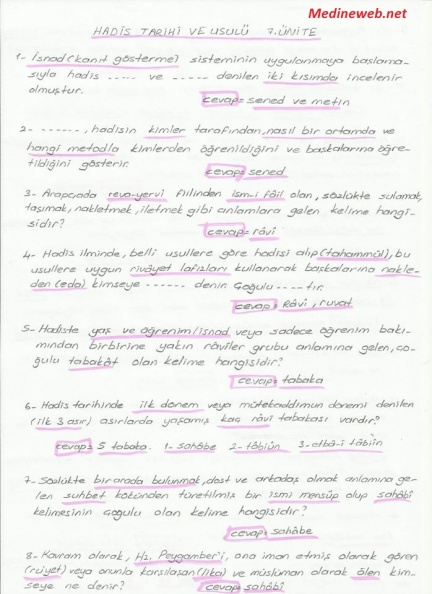 Medineweb.net
HADİS TARİHİ VE USULÜ 7.ÜNİTE
1- İsnad (kanıt gösterme) sisteminin uygulanmaya başlama-
sıyla hadis ----- ve ----- denilen iki kısımda incelenir
olmuştur.
cevap= sened ve metin
2- ------, hadisin kimler tarafından, nasıl bir ortamda ve
hangi metodla kimlerden öğrenildiğini ve başkalarına öğre-
tildiğini gösterir.
cevap= sened
3- Arapçada reva-yervi fiilinden ism-i fâil olan, sözlükte sulamak,
taşımak, nakletmek, iletmek gibi anlamlara gelen kelime hangi-
sidir?
cevap= râvi
4- Hadis ilminde, belli usullere göre hadisi alıp (tahammül), bu
usullere uygun rivâyet lafızları kullanarak başkalarına nakle-
den (eda) kimseye ------ denir. Çoğulu ----tır.
cevap= Râvi, ruvat
5- Hadiste yaş ve öğrenim/isnad veya sadece öğrenim bakı-
mından birbirine yakın râviler grubu anlamına gelen, ço-
ğulu tabakât olan kelime hangisidir?
cevap= tabaka
6- Hadis tarihinde ilk dönem veya mütekaddimun dönemi denilen
(ilk 3 asır) asırlarda yaşamış kaç râvi tabakası vardır?
cevap= 5 tabaka. 1- sahâbe 2- tâbiûn 3- etbâ-i tâbiîn
7- Sözlükte bir arada bulunmak, dost ve arkadaş olmak anlamına ge-
len suhbet kökünden türetilmiş bir ismi mensûp olup sahâbî
kelimesinin çoğulu olan kelime hangisidir?
cevap= sahâbe
8- Kavram olarak, Hz. Peygamber'i, ona iman etmiş olarak gören
(rü'yet) veya onunla karşılaşan (lika) ve müslüman olarak ölen kim-
seye ne denir?
cevap= sahâbî